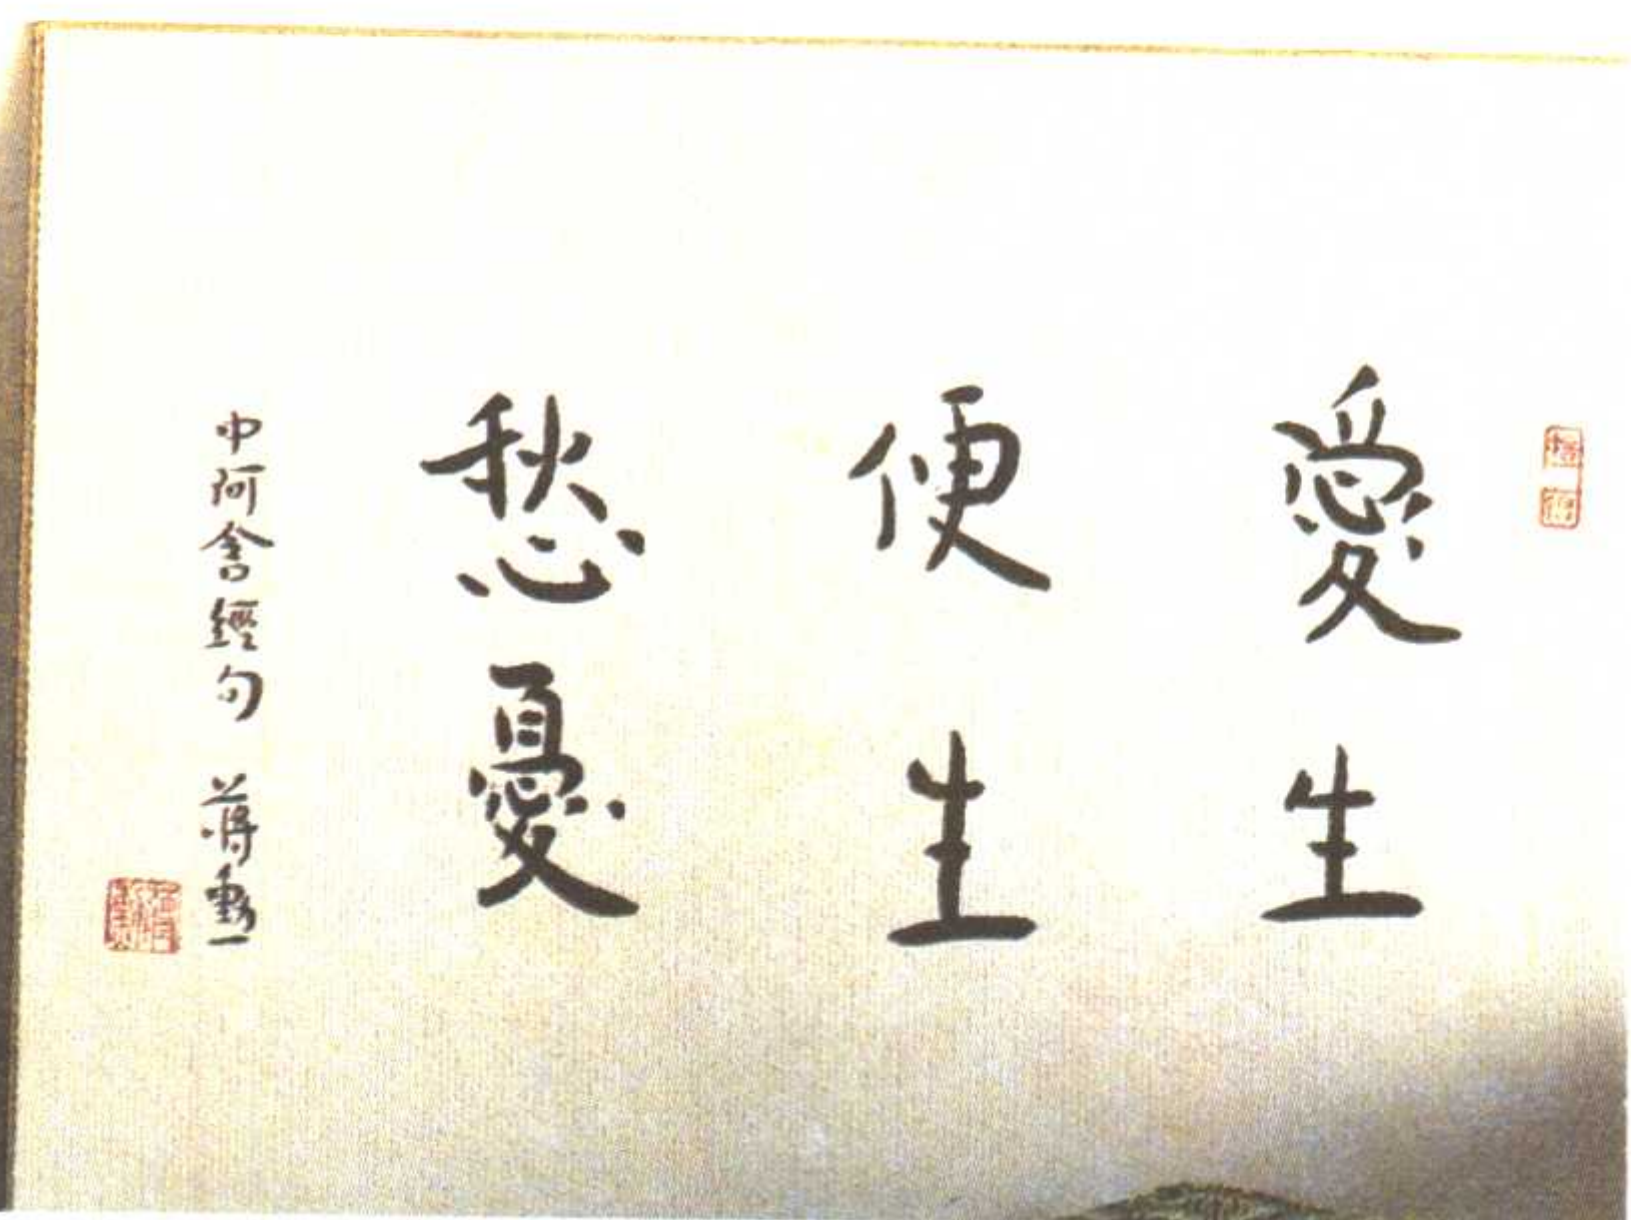 愛生
便生
愁憂
中阿含經句 蔣勳